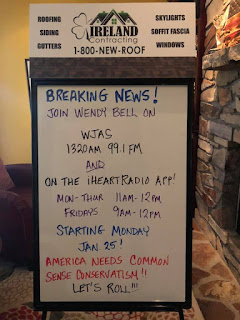 ROOFING
SIDING
GUTTERS
IRELAND
Contracting
1-800-NEW-ROOF
SKYLIGHTS
SOFFIT FASCIA
WINDOWS
BREAKING NEWS!
JOIN WENDY BELL ON
WJAS
1320AM 99.1 FM
AND
ON THE iHEARTRADIO APP!
MON-THUR 11AM-12PM
FRIDAYS 9AM-12PM
STARTING MONDAY
JAN 25!
AMERICA NEEDS COMMON
SENSE CONSERVATISM!!
LET'S ROLL!!!